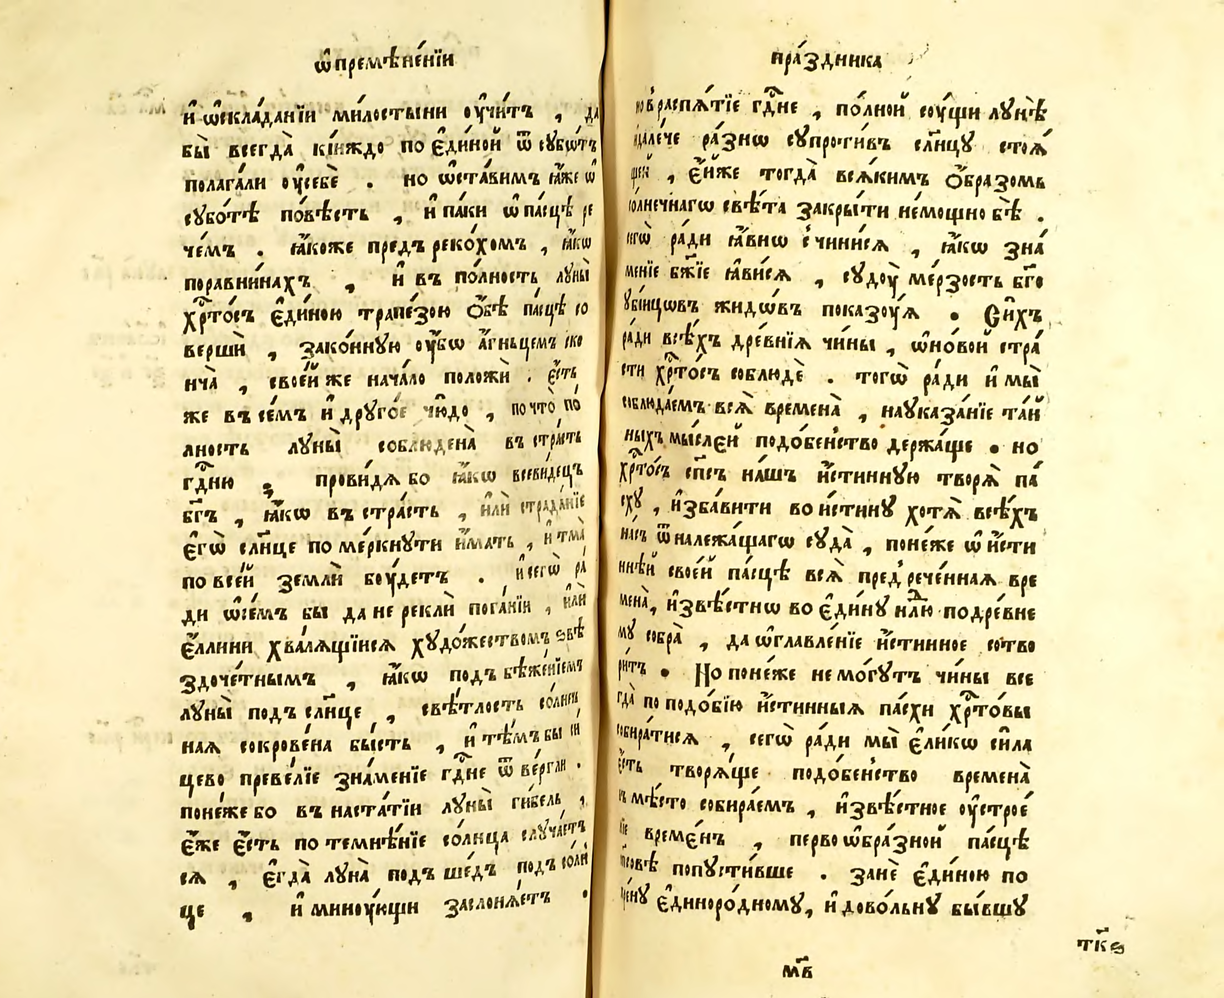 ѿ премѣне́нїи
и҆ ѡ҆складанїи милостыни ᲂу҆чи́тъ , да
бы̀ всегда̀ кїиждо по є҆дино́й ѿ сꙋбѡ́тъ
полага́ли ᲂу҆себѐ . но ѡ҆ста́вимъ ꙗ҆́же ѡ҆
сꙋбо́тѣ по́вѣсть , и҆ па́ки ѡ҆ па́сцѣ ре
че́мъ . ꙗ҆́коже предъ реко́хомъ , ꙗ҆́кѡ
поравни́нахъ , и҆ въ по́лность лꙋны̀
хрⷭ҇то́съ є҆ди́ною трапе́зою ѻ҆́бѣ па́сцѣ со
вершѝ , зако́ннꙋю ᲂу҆́бѡ а҆́гньцемъ ско
нча̀ , свое́й же нача́ло положѝ . є҆́сть
же въ се́мъ и҆ дрꙋго́е чю́до , почто̀ по́
лность лꙋны̀ соблюдена̀ въ стра́сть
гдⷭ҇ню ; прови́дѧ бо ꙗ҆́кѡ всеви́децъ
бг҃ъ , ꙗ҆́кѡ въ стра́сть , и҆лѝ страда́нїе
є҆гѡ̀ сл҃нце поме́ркнꙋти и҆́мать , и҆ тма̀
по все́й землѝ бꙋ́детъ . и҆ сегѡ̀ ра́
ди ѡ҆ се́мъ бы да не реклѝ пога́нїи , и҆лѝ
є҆́ллини хвалѧ́щїисѧ хꙋдо́жествомъ ѕвѣ
здоче́тнымъ , ꙗ҆́кѡ подъ бѣже́нїемъ
лꙋны̀ подъ сл҃нце , свѣ́тлость со́лнеч
наѧ сокрове́на бы́сть , и҆ тѣ́мъ бы си́
цево преве́лїе зна́менїе гдⷭ҇не ѿве́ргли .
поне́же бо въ наста́тїи лꙋны̀ ги́бель ,
є҆́же є҆́сть по темнѣ́нїе со́лнца слꙋча́етъ
сѧ , є҆гда̀ лꙋна̀ подъ ше́дъ подъ со́лн
це , и҆ минꙋ́ющи заслонѧ́етъ .
пра́здника
новраспѧ́тїе гдⷭ҇не , по́лной сꙋ́щи лꙋнѣ̀
и҆дале́че ра́знѡ сꙋпроти́въ сл҃нцꙋ стоѧ́
щей , є҆́йже тогда̀ всѧ́кимъ ѻ҆́бразомъ
со́лнечнагѡ свѣ́та закры́ти немо́щно бѣ̀ .
сегѡ̀ ра́ди ꙗ҆́внѡ сꙋчини́сѧ , ꙗ҆́кѡ зна́
менїе бж҃їе ꙗ҆ви́сѧ , сꙋдꙋ́ ме́рзость бг҃о
ꙋбі́йцѡвъ жидѡ́въ показꙋ́ѧ . Си́хъ
ра́ди всѣ́хъ дре́внїѧ чи́ны , ѡ҆ но́вой стра́
сти хрⷭ҇то́съ соблюдѐ . тогѡ̀ ра́ди и҆ мы̀
соблюда́емъ всѧ̀ времена̀ , науказа́нїе та́й
ныхъ мы́слей подо́бенство держа́ще . но
хрⷭ҇то́съ сп҃съ на́шъ и҆́стиннꙋю творѧ̀ па́
схꙋ , и҆зба́вити вои́стинꙋ хотѧ̀ всѣ́хъ
на́съ ѿ належа́щагѡ сꙋда̀ , поне́же ѡ҆ и҆сти
ннѣй свое́й па́сцѣ всѧ̀ предрече́ннаѧ вре
мена̀ , и҆звѣ́стнѡ во є҆ди́нꙋ нлⷣю подре́вне
мꙋ собра̀ , да ѡ҆главле́нїе и҆́стинное сотво
ри́тъ . Но поне́же не мо́гꙋтъ чи́ны все
гда̀ по подо́бїю и҆́стинныѧ па́схи хрⷭ҇то́вы
собира́тисѧ , сегѡ̀ ра́ди мы̀ є҆ли́кѡ си́ла
є҆́сть творѧ́ще подо́бенство времена̀
въ мѣ́сто собира́емъ , и҆звѣ́стное ᲂу҆строе́
нїе време́нъ , перво ѡ҆бра́зной па́сцѣ
попꙋсти́вше . занѐ є҆ди́ною по
є҆диноро́дномꙋ , и҆ дово́льнꙋ бы́вшꙋ
тк҃ѕ
мв҃